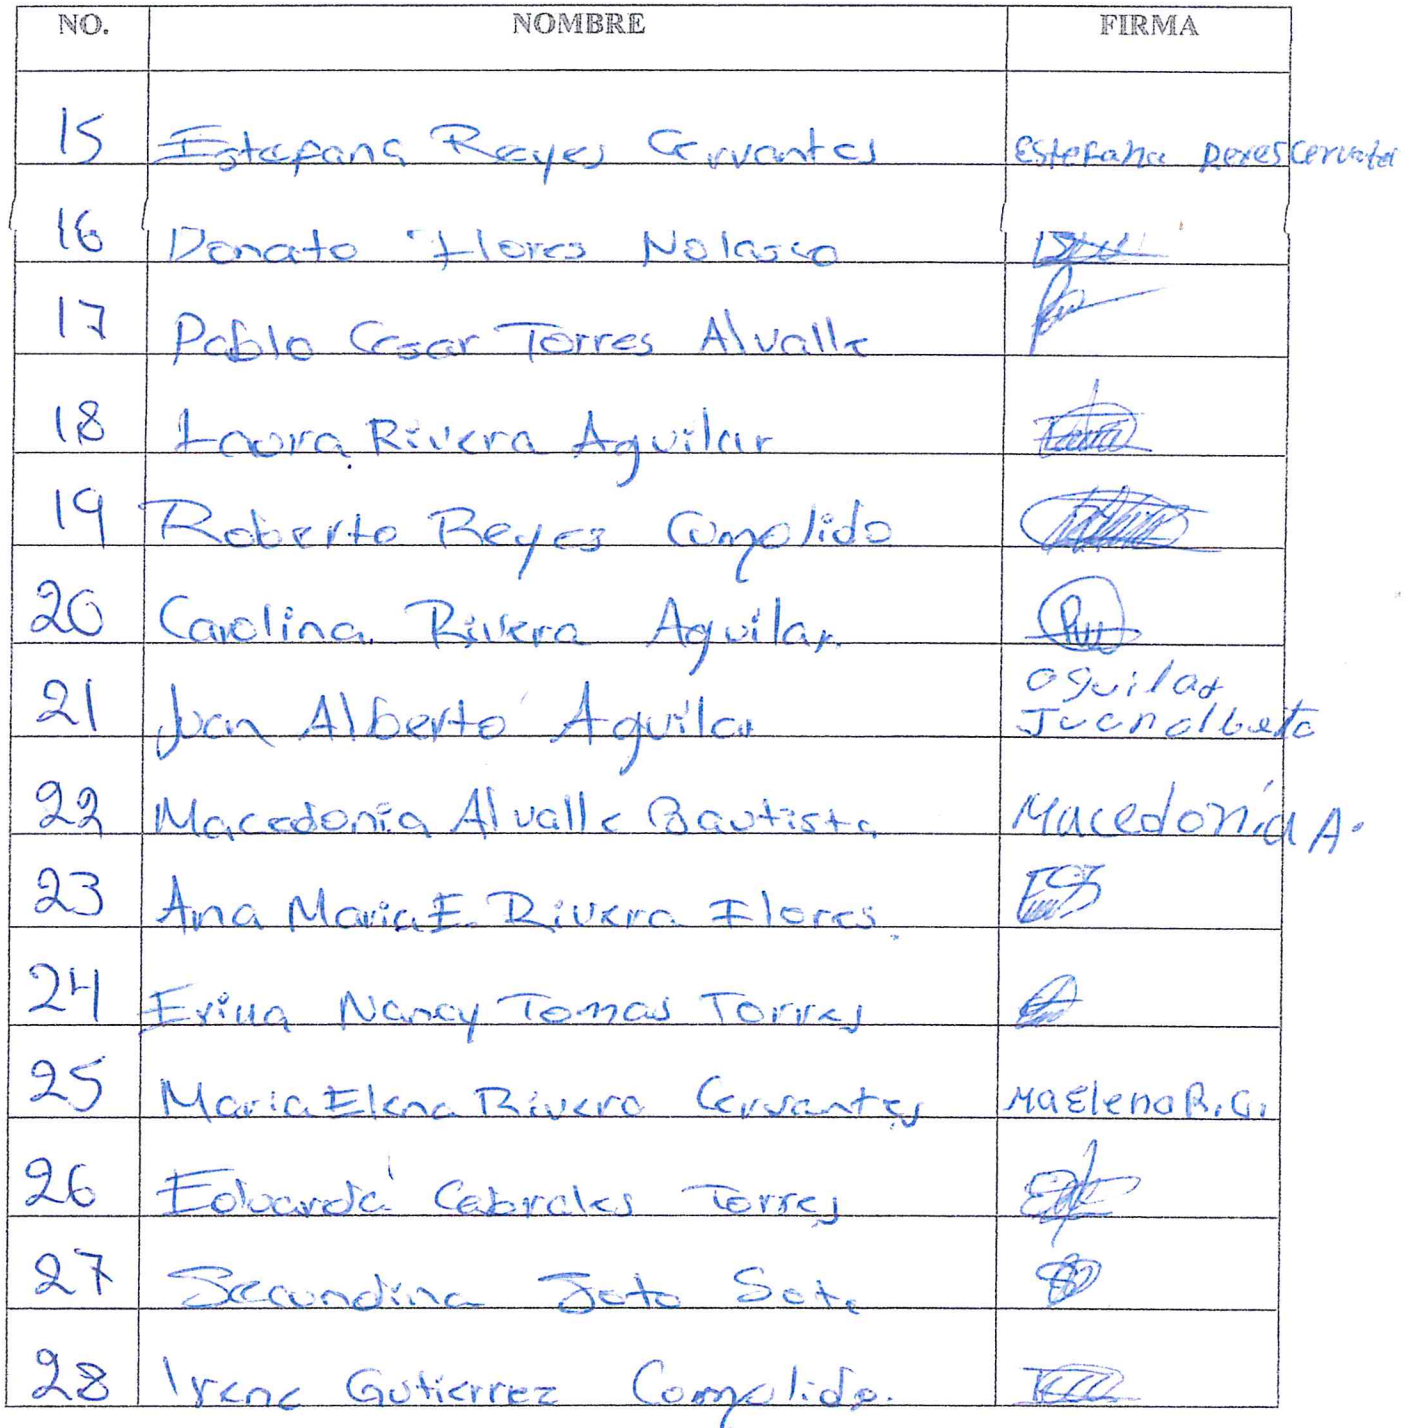 NO. NOMBRE FIRMA
15 Estefana Reyes Cervantes Estefana Reyes Cervantes
16 Donato Flores Nolasco
17 Pablo Cesar Torres Alvalle
18 Laura Rivera Aguilar
19 Roberto Reyes Cumplido
20 Carolina Rivera Aguilar
21 Juan Alberto Aguilar aguilar
Juan alberto
22 Macedonia Alvalle Bautista Macedonia A.
23 Ana Maria E. Rivera Flores
24 Nancy Tomas Torres
25 Maria Elena Rivera Cervantes Ma Elena R. C.
26 Eduarda Cabrales Torres
27 Secundina Soto
28 Irene Gutierrez Complido.